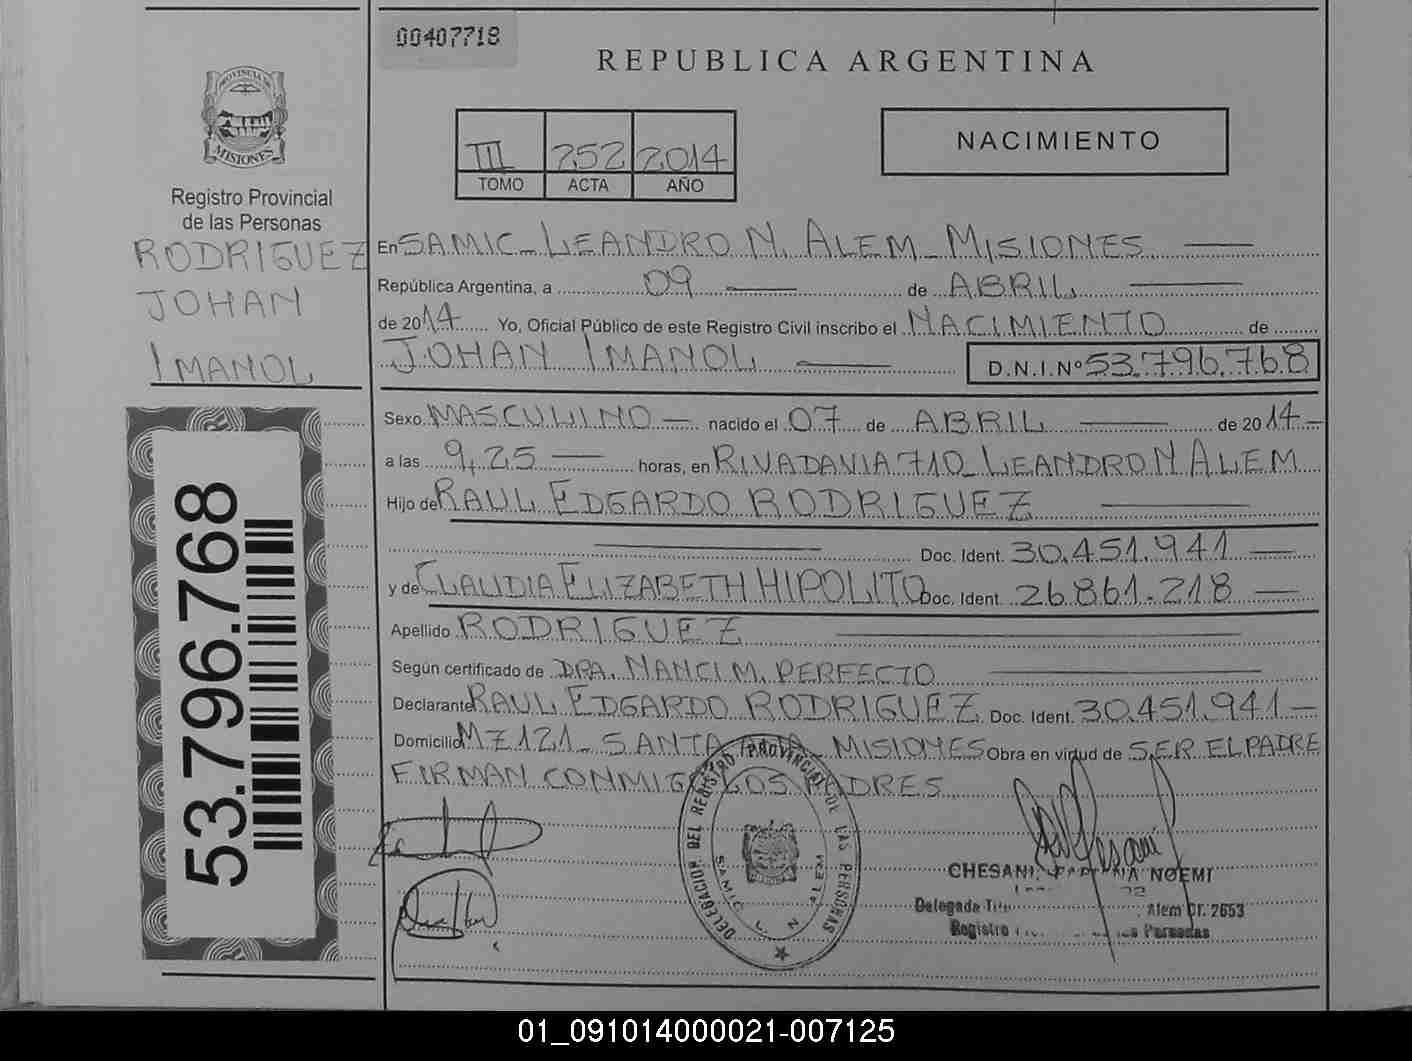 00407718
REPUBLICA ARGENTINA
PROVINCIA DE
MISIONES
Registro Provincial
de las Personas
RODRIGUEZ
JOHAN
IMANOL
53.796.768
III 252 2014
TOMO ACTA AÑO
NACIMIENTO
En SAMIC - LEANDRO N. ALEM - MISIONES
República Argentina, a 09 de ABRIL
de 2014 Yo, Oficial Público de este Registro Civil inscribo el NACIMIENTO de
JOHAN IMANOL D.N.I.Nº 53.796.768
Sexo MASCULINO nacido el 07 de ABRIL de 2014
a las 9,25 horas, en RIVADAVIA 710 - LEANDRO N ALEM
Hijo de RAUL EDGARDO RODRIGUEZ
Doc. Ident. 30.451.941
y de CLAUDIA ELIZABETH HIPOLITO Doc. Ident. 26.861.218
Apellido RODRIGUEZ
Según certificado de DRA. NANCI M. PERFECTO
Declarante RAUL EDGARDO RODRIGUEZ Doc. Ident. 30.451.941
Domicilio MZ 121 - SANTA ANA - MISIONES Obra en virtud de SER EL PADRE
FIRMAN CONMIGO LOS PADRES
DELEGACION DEL REGISTRO PROVINCIAL DE LAS PERSONAS
SAMIC L. N. ALEM
CHESANI, NOEMI
Delegada Alem Cr. 2653
Registro las Personas
01_091014000021-007125